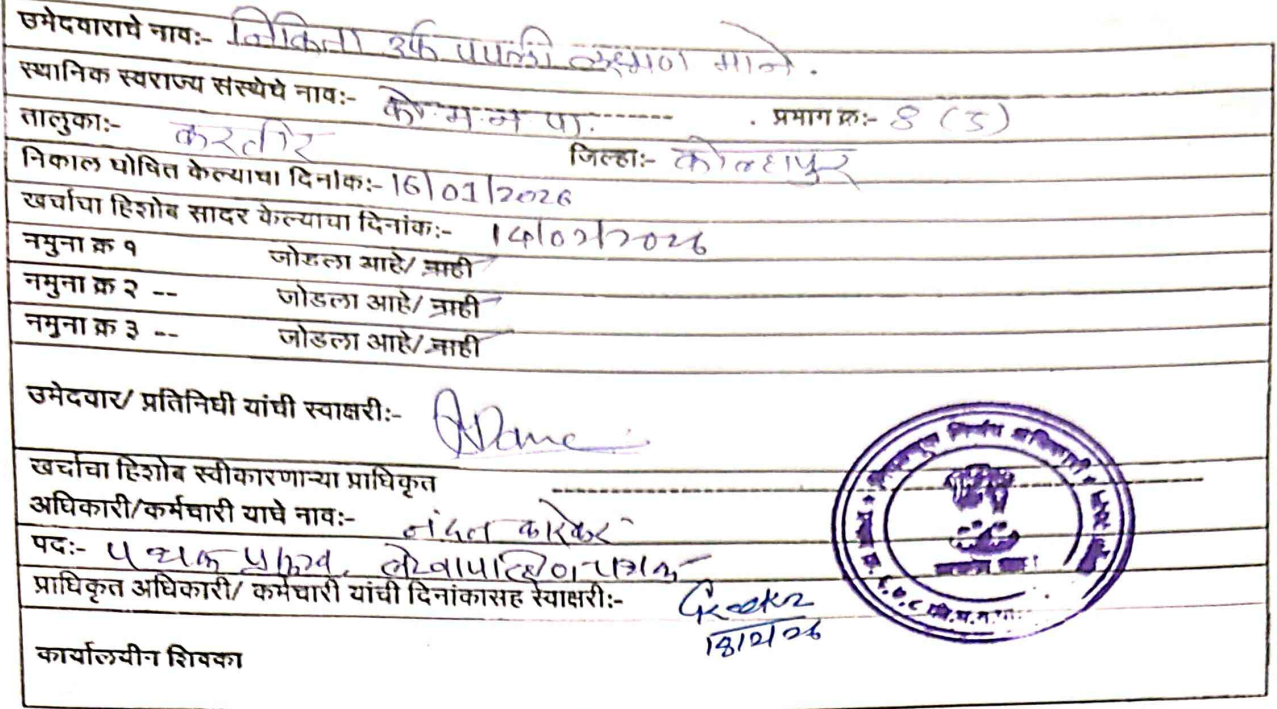 उमेदवाराचे नाव:- निकिता उर्फ पपली लक्ष्मण माने.
स्थानिक स्वराज्य संस्थेचे नाव:- को.म.न.पा. प्रभाग क्र:- 8 (ड)
तालुका:- करवीर जिल्हा:- कोल्हापूर
निकाल घोषित केल्याचा दिनांक:- 16/01/2026
खर्चाचा हिशोब सादर केल्याचा दिनांक:- 14/02/2026
नमुना क्र १ जोडला आहे/ नाही
नमुना क्र २ -- जोडला आहे/ नाही
नमुना क्र ३ -- जोडला आहे/ नाही
उमेदवार/ प्रतिनिधी यांची स्वाक्षरी:-
खर्चाचा हिशोब स्वीकारणाऱ्या प्राधिकृत
अधिकारी/कर्मचारी याचे नाव:- नंदन कारेकर
पद:- पथक प्रमुख, लेखापरिक्षण पथक
प्राधिकृत अधिकारी/ कर्मचारी यांची दिनांकासह स्वाक्षरी:-
13/2/26
कार्यालयीन शिक्का
निर्णय अधिकारी